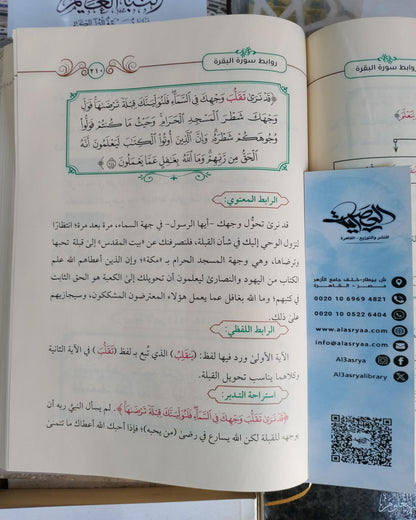 روابط سورة البقرة
٢١٠
﴿قَدْ نَرَىٰ تَقَلُّبَ وَجْهِكَ فِي السَّمَاءِ فَلَنُوَلِّيَنَّكَ قِبْلَةً تَرْضَىٰهَا فَوَلِّ
وَجْهَكَ شَطْرَ الْمَسْجِدِ الْحَرَامِ وَحَيْثُ مَا كُنتُمْ فَوَلُّوا
وُجُوهَكُمْ شَطْرَهُ وَإِنَّ الَّذِينَ أُوتُوا الْكِتَٰبَ لَيَعْلَمُونَ أَنَّهُ
الْحَقُّ مِن رَّبِّهِمْ وَمَا اللَّهُ بِغَٰفِلٍ عَمَّا يَعْمَلُونَ﴾
الرابط المعنوي:
قد نرى تحوُّل وجهك -أيها الرسول- في جهة السماء، مرة بعد مرة؛ انتظارًا
لنزول الوحي إليك في شأن القبلة، فلنصرفنك عن «بيت المقدس» إلىٰ قبلة تحبها
وترضاها، وهي وجهة المسجد الحرام بـ «مكة»؛ وإن الذين أعطاهم الله علم
الكتاب من اليهود والنصارىٰ ليعلمون أن تحويلك إلىٰ الكعبة هو الحق الثابت
في كتبهم؛ وما الله بغافل عما يعمل هؤلاء المعترضون المشككون، وسيجازيهم
علىٰ ذلك.
الرابط اللفظي:
الآية الأولىٰ ورد فيها لفظ: (يَنقَلِبُ) الذي تُبع بـ لفظ (تَقَلُّبَ) في الآية الثانية
وكلاهما يناسب تحويل القبلة.
استراحة التدبر:
﴿قَدْ نَرَىٰ تَقَلُّبَ وَجْهِكَ فِي السَّمَاءِ فَلَنُوَلِّيَنَّكَ قِبْلَةً تَرْضَىٰهَا﴾. لم يسأل النبي ربه أن
يوجهه للقبلة لكن الله يسارع في رضىٰ (من يحبه)؛ فإذا أحبك الله أعطاك ما تتمنىٰ
روابط سورة البقرة
العصرية
للنشر والتوزيع - القاهرة
ش البيطار-خلف جامع الأزهر
مصر - القاهرة
0020 10 6969 4821
0020 10 0522 6404
www.alasryaa.com
info@alasryaa.com
Al3asrya
Al3asryalibrary